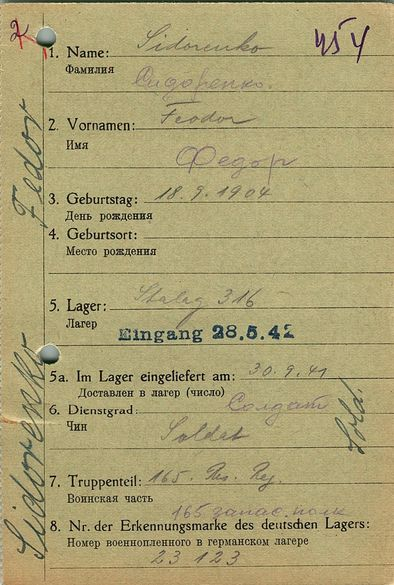 2
454
1. Name: Sidorenko
Фамилия
Сидоренко.
2. Vornamen: Feodor
Имя
Федор
3. Geburtstag: 18.9.1904
День рождения
4. Geburtsort:
Место рождения
5. Lager: Stalag 316
Лагер
Eingang 28.5.42
5a. Im Lager eingeliefert am: 30.9.41
Доставлен в лагер (число)
6. Dienstgrad: Солдат
Чин
Soldat
7. Truppenteil: 165. Rej.
Воинская часть
165 запас. полк
8. Nr. der Erkennungsmarke des deutschen Lagers:
Номер военнопленного в германском лагере
23 123
Sidorenko Fedor
Sold.